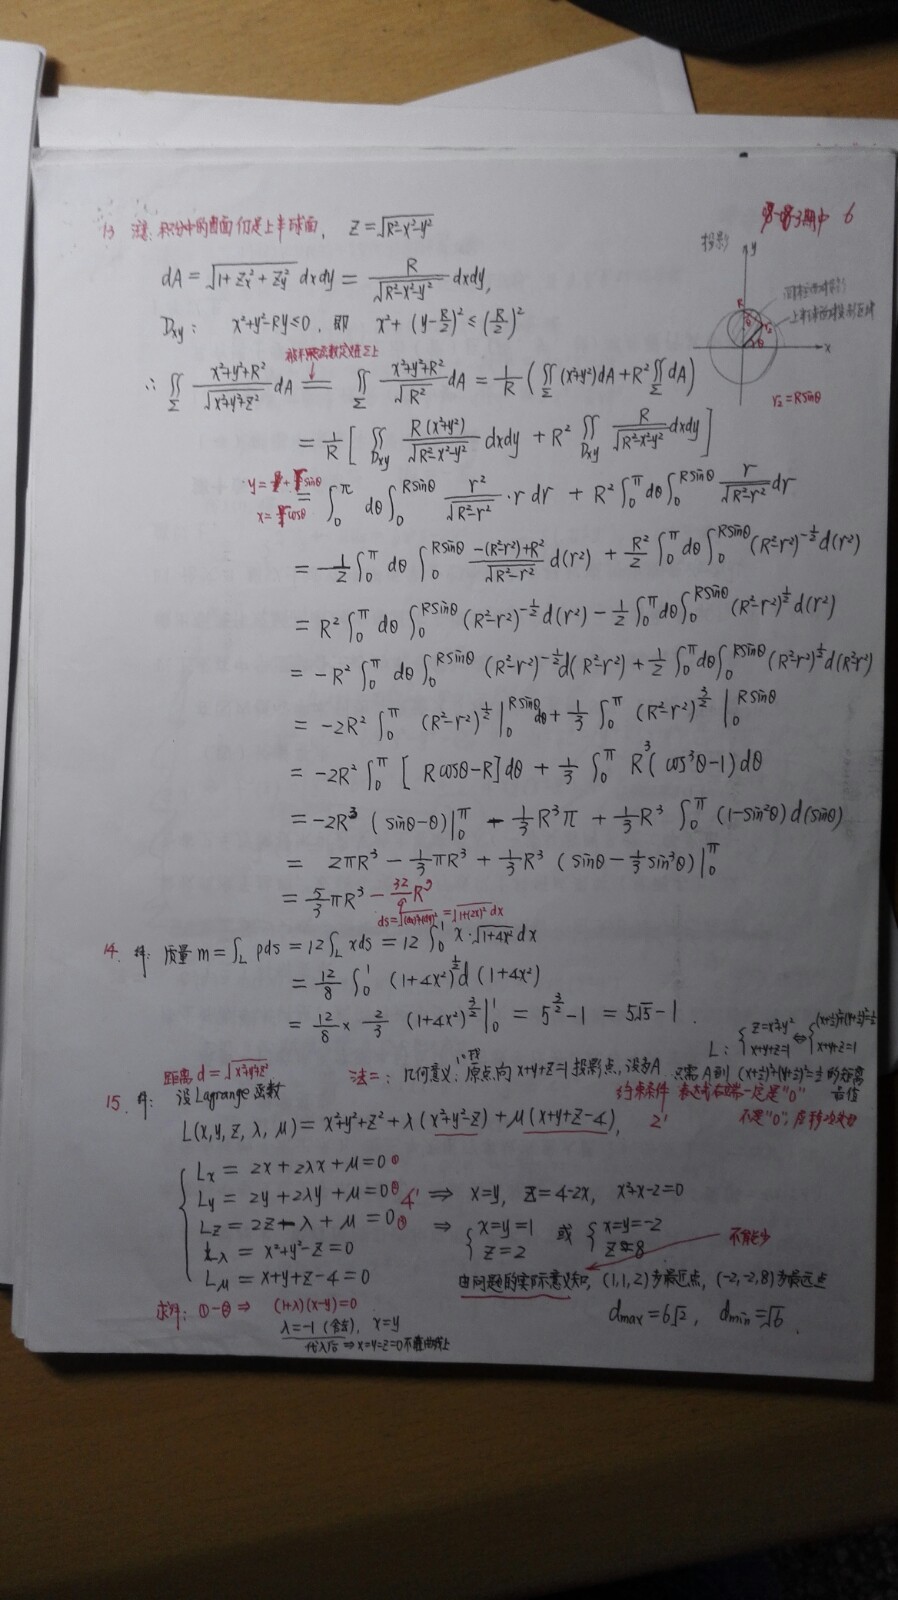 期中 6
13 注意: 积分中的曲面仍是上半球面, z=√(R²-x²-y²)
投影
dA = √(1+Zx²+Zy²) dxdy = R/√(R²-x²-y²) dxdy,
Dxy: x²+y²-Ry≤0, 即 x²+(y-R/2)²≤(R/2)²
y
R
x
θ
r₂=Rsinθ
∴ ∬_Σ (x²+y²+R²)/√(x²+y²+z²) dA = ∬_Σ (x²+y²+R²)/√R² dA = 1/R (∬_Σ (x²+y²)dA + R²∬_Σ dA)
= 1/R [ ∬_Dxy R(x²+y²)/√(R²-x²-y²) dxdy + R² ∬_Dxy R/√(R²-x²-y²) dxdy ]
= ∫₀^π dθ ∫₀^{Rsinθ} r²/√(R²-r²) · r dr + R² ∫₀^π dθ ∫₀^{Rsinθ} r/√(R²-r²) dr
= -1/2 ∫₀^π dθ ∫₀^{Rsinθ} (-(R²-r²)+R²)/√(R²-r²) d(r²) + R²/2 ∫₀^π dθ ∫₀^{Rsinθ} (R²-r²)^{-1/2} d(r²)
= R² ∫₀^π dθ ∫₀^{Rsinθ} (R²-r²)^{-1/2} d(r²) - 1/2 ∫₀^π dθ ∫₀^{Rsinθ} (R²-r²)^{1/2} d(r²)
= -R² ∫₀^π dθ ∫₀^{Rsinθ} (R²-r²)^{-1/2} d(R²-r²) + 1/2 ∫₀^π dθ ∫₀^{Rsinθ} (R²-r²)^{1/2} d(R²-r²)
= -2R² ∫₀^π (R²-r²)^{1/2} |₀^{Rsinθ} dθ + 1/3 ∫₀^π (R²-r²)^{3/2} |₀^{Rsinθ}
= -2R² ∫₀^π [Rcosθ-R]dθ + 1/3 ∫₀^π R³(cos³θ-1)dθ
= -2R³ (sinθ-θ)|₀^π - 1/3 R³π + 1/3 R³ ∫₀^π (1-sin²θ)d(sinθ)
= 2πR³ - 1/3 πR³ + 1/3 R³ (sinθ - 1/3 sin³θ)|₀^π
= 5/3 πR³ - 32/9 R³
ds=√((dx)²+(dy)²) = √(1+(2x)²) dx
14. 解: 质量 m = ∫_L ρds = 12∫_L xds = 12 ∫₀¹ x·√(1+4x²) dx
= 12/8 ∫₀¹ (1+4x²)^{1/2} d(1+4x²)
= 12/8 × 2/3 (1+4x²)^{3/2} |₀¹ = 5^{3/2} - 1 = 5√5 - 1.
L: { z=x²+y² x+y+z=1 ⇔ { (x+½)²+(y+½)²= x+y+z=1
距离 d=√(x²+y²+z²)
法二: 几何意义: 原点向x+y+z=1投影点, 设为A 只需A到(x+½)²+(y+½)²= 的距离
15. 解: 设Lagrange函数
约束条件 表达式右端一定是"0"
L(x,y,z,λ,μ) = x²+y²+z²+λ(x²+y²-z)+μ(x+y+z-4), 2'
不是"0",
Lx = 2x+2λx+μ=0 ①
Ly = 2y+2λy+μ=0 ② 4' ⇒ x=y, z=4-2x, x²+x-2=0
Lz = 2z-λ+μ=0 ③ ⇒ { x=y=1 z=2 或 { x=y=-2 z=8
Lλ = x²+y²-z=0
不能少
Lμ = x+y+z-4=0
由问题的实际意义知, (1,1,2)为最近点, (-2,-2,8)为最远点
求解: ①-② ⇒ (1+λ)(x-y)=0
dmax=6√2, dmin=√6.
λ=-1 (舍去), x=y